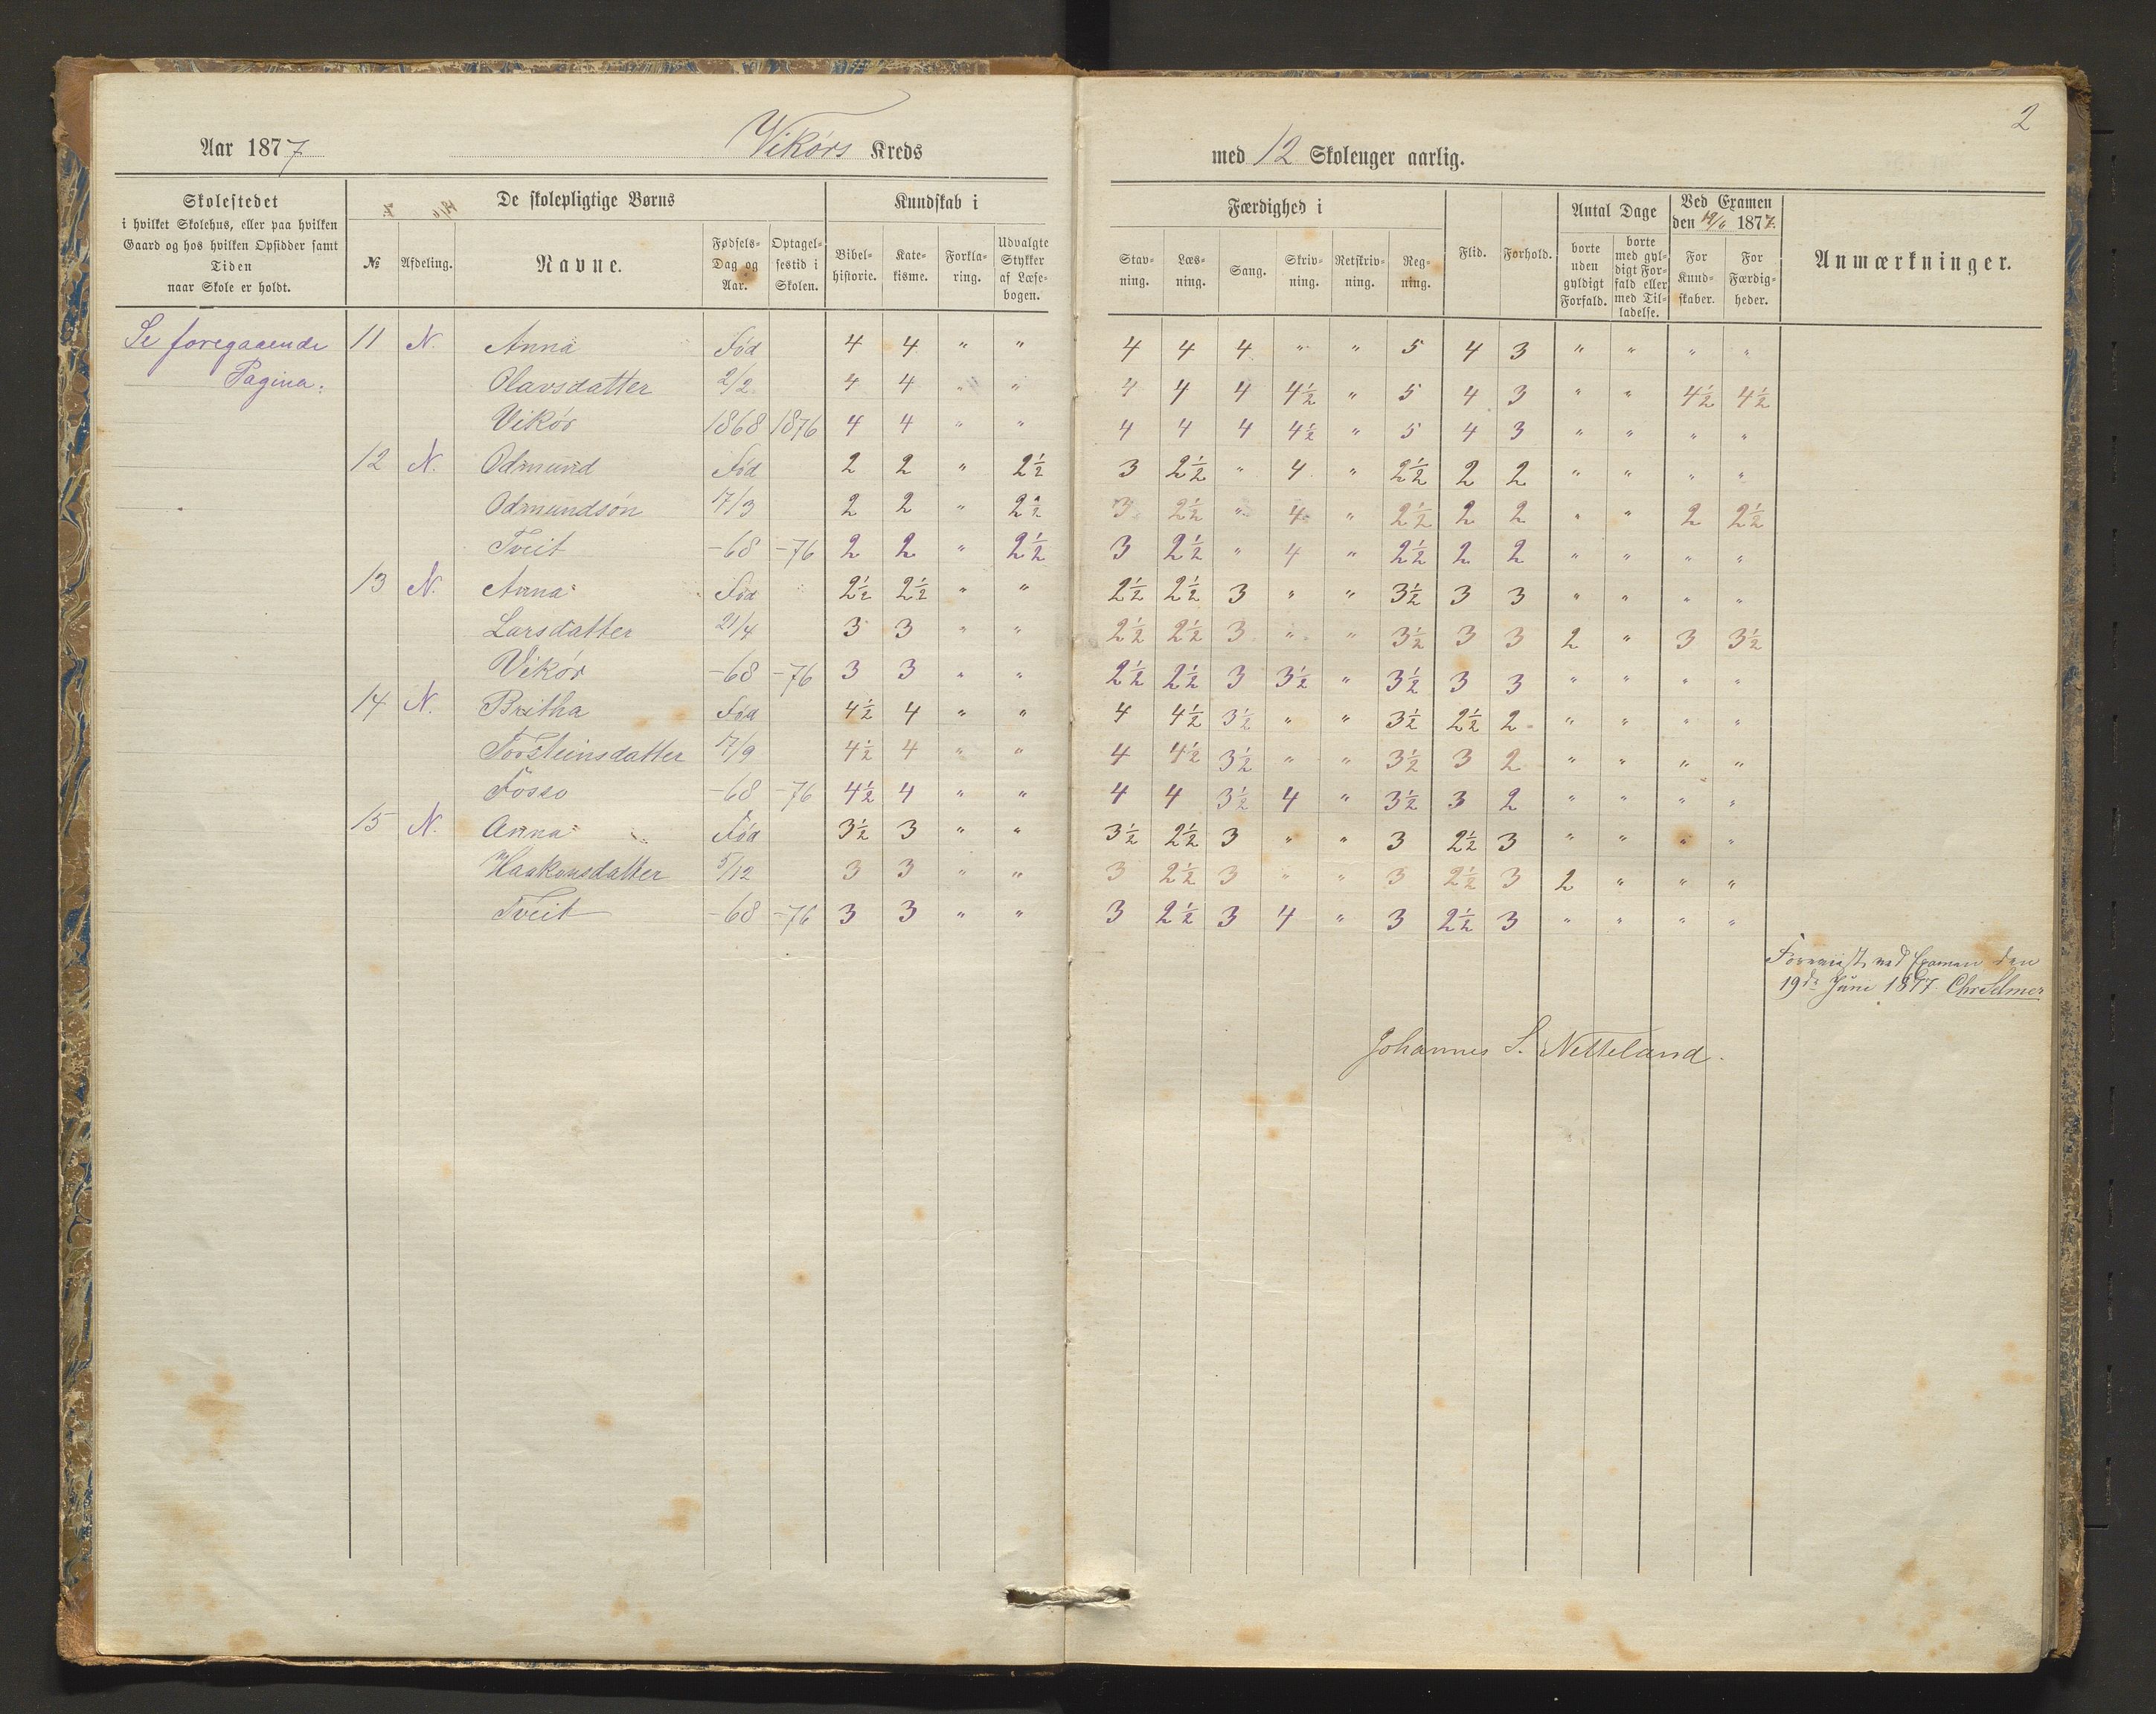 2
Aar 1877 Vikørs Kreds med 12 Skoleuger aarlig.
Skolestedet
i hvilket Skolehus, eller paa hvilken
Gaard og hos hvilken Opsidder samt
Tiden
naar Skole er holdt.
De skolepligtige Børns
№ Afdeling. Navne. Fødsels-Dag og Aar. Optagelsestid i Skolen.
Kundskab i
Bibelhistorie. Katekisme. Forklaring. Udvalgte Stykker af Læsebogen.
Færdighed i
Stavning. Læsning. Sang. Skrivning. Retskrivning. Regning.
Flid. Forhold.
Antal Dage
borte uden gyldigt Forfald. borte med gyldigt Forfald eller med Tilladelse.
Ved Examen den 19/6 1877.
For Kundskaber. For Færdigheder.
Anmærkninger.
Se foregaaende 11 N. Anna Fød 4 4 " " 4 4 4 " " 5 4 3 " " " "
Pagina. Olavsdatter 2/2 4 4 " " 4 4 4 4½ " 5 4 3 " " 4½ 4½
Vikør 1868 1876 4 4 " " 4 4 4 4½ " 5 4 3 " " " "
12 N. Odmund Fød 2 2 " 2½ 3 2½ " 4 " 2½ 2 2 " " " "
Odmundsøn 17/3 2 2 " 2½ 3 2½ " 4 " 2½ 2 2 " " 2 2½
Tveit -68 -76 2 2 " 2½ 3 2½ " 4 " 2½ 2 2 " " " "
13 N. Anna Fød 2½ 2½ " " 2½ 2½ 3 " " 3½ 3 3 " " " "
Larsdatter 21/4 3 3 " " 2½ 2½ 3 " " 3½ 3 3 2 " 3 3½
Vikør -68 -76 3 3 " " 2½ 2½ 3 3½ " 3½ 3 3 " " " "
14 N. Britha Fød 4½ 4 " " 4 4½ 3½ " " 3½ 2½ 2 " " " "
Torsteinsdatter 17/9 4½ 4 " " 4 4½ 3½ " " 3½ 3 2 " " " "
Fosso -68 -76 4½ 4 " " 4 4 3½ 4 " 3½ 3 2 " " " "
15 N. Anna Fød 3½ 3 " " 3½ 2½ 3 " " 3 2½ 3 " " " "
Haakonsdatter 5/12 3 3 " " 3 2½ 3 " " 3 2½ 3 2 " " "
Tveit -68 -76 3 3 " " 3 2½ 3 4 " 3 2½ 3 " " " "
Forevist ved Examen den
19de Juni 1877. Chr Selmer
Johannes S. Netteland.